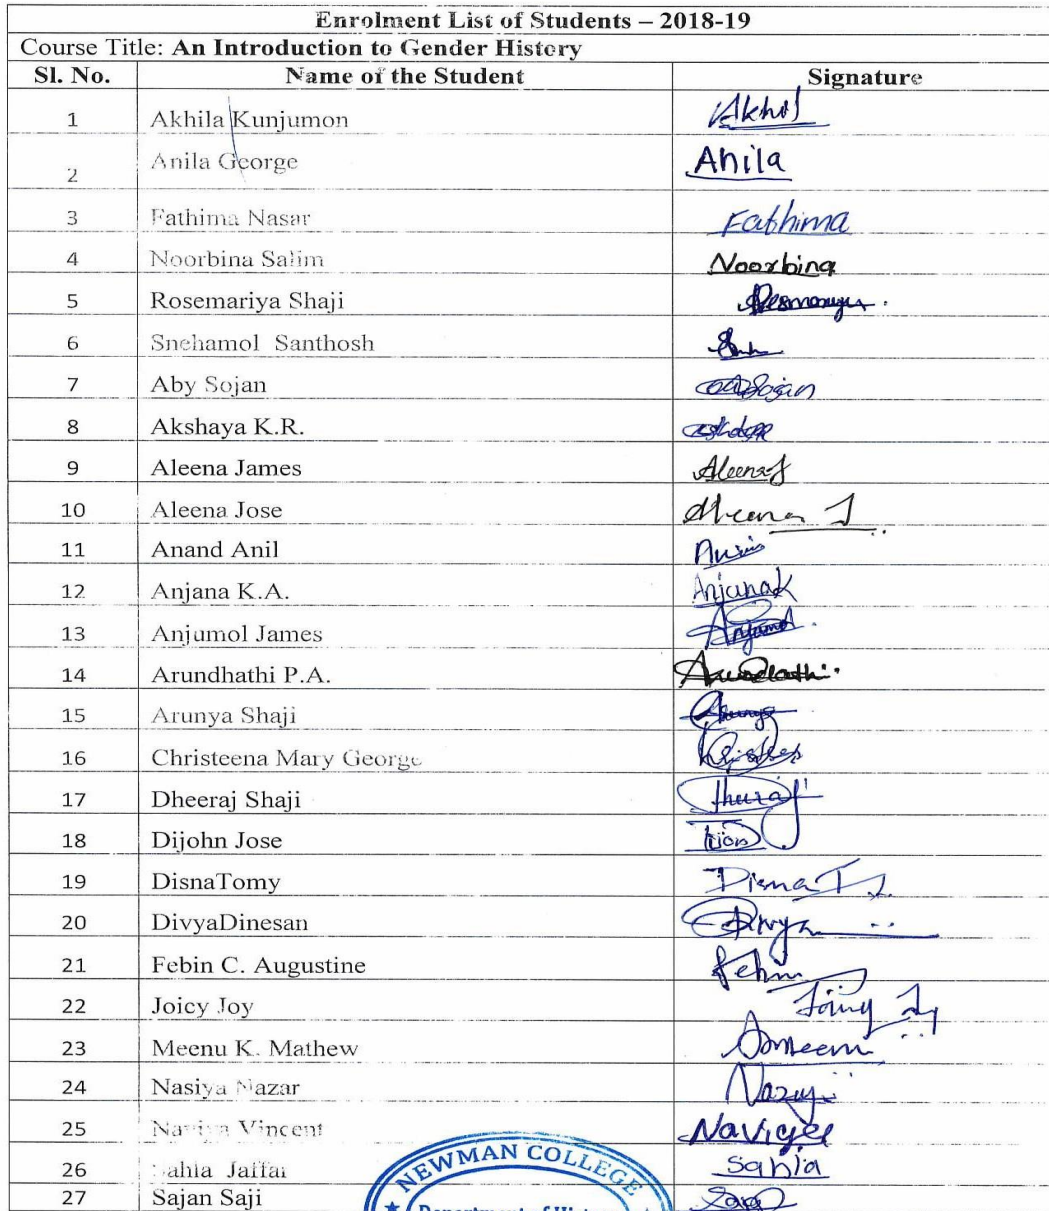 Enrolment List of Students – 2018-19
Course Title: An Introduction to Gender History
Sl. No. Name of the Student Signature
1 Akhila Kunjumon Akhil
2 Anila George Anila
3 Fathima Nasar Fathima
4 Noorbina Salim Noorbina
5 Rosemariya Shaji
6 Snehamol Santhosh
7 Aby Sojan
8 Akshaya K.R.
9 Aleena James AleenaJ
10 Aleena Jose Aleena J
11 Anand Anil
12 Anjana K.A. AnjanaK
13 Anjumol James Anjumol
14 Arundhathi P.A. Arundhathi
15 Arunya Shaji
16 Christeena Mary George
17 Dheeraj Shaji
18 Dijohn Jose
19 DisnaTomy Disna T
20 DivyaDinesan Divya
21 Febin C. Augustine Febin
22 Joicy Joy
23 Meenu K. Mathew
24 Nasiya Nazar
25 Vincent
26 Jaffar Sahia
27 Sajan Saji
NEWMAN COLLEGE